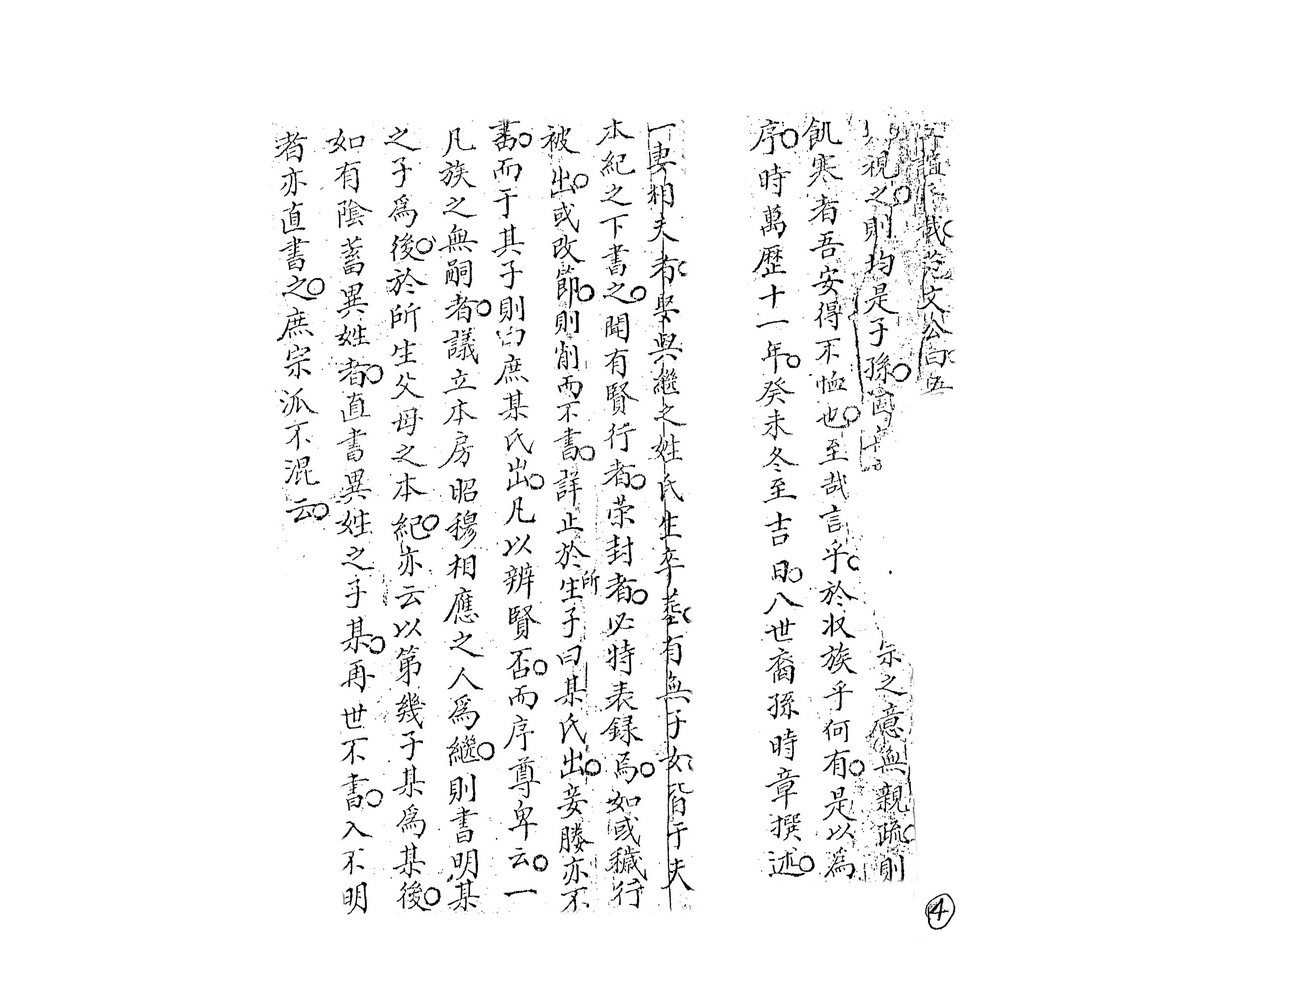 載范文公曰吾
宗之意無親疏則
視之則均是子孫
飢寒者吾安得不恤也至哉言乎於収族乎何有是以為
序時萬歷十一年癸未冬至吉日八世裔孫時章撰述
一妻相夫者娶與繼之姓氏生卒墓有無子女皆于夫
本紀之下書之間有賢行者荣封者必特表録焉如或穢行
被出或改節則削而不書詳止於所生子曰某氏出妾媵亦不
書而于其子則曰庶某氏出凡以辨賢否而序尊卑云一
凡族之無嗣者議立本房昭穆相應之人為繼則書明某
之子爲後於所生父母之本紀亦云以第幾子某爲某後
如有陰蓄異姓者直書異姓之子某再世不書入不明
者亦直書之庶宗派不混云
4